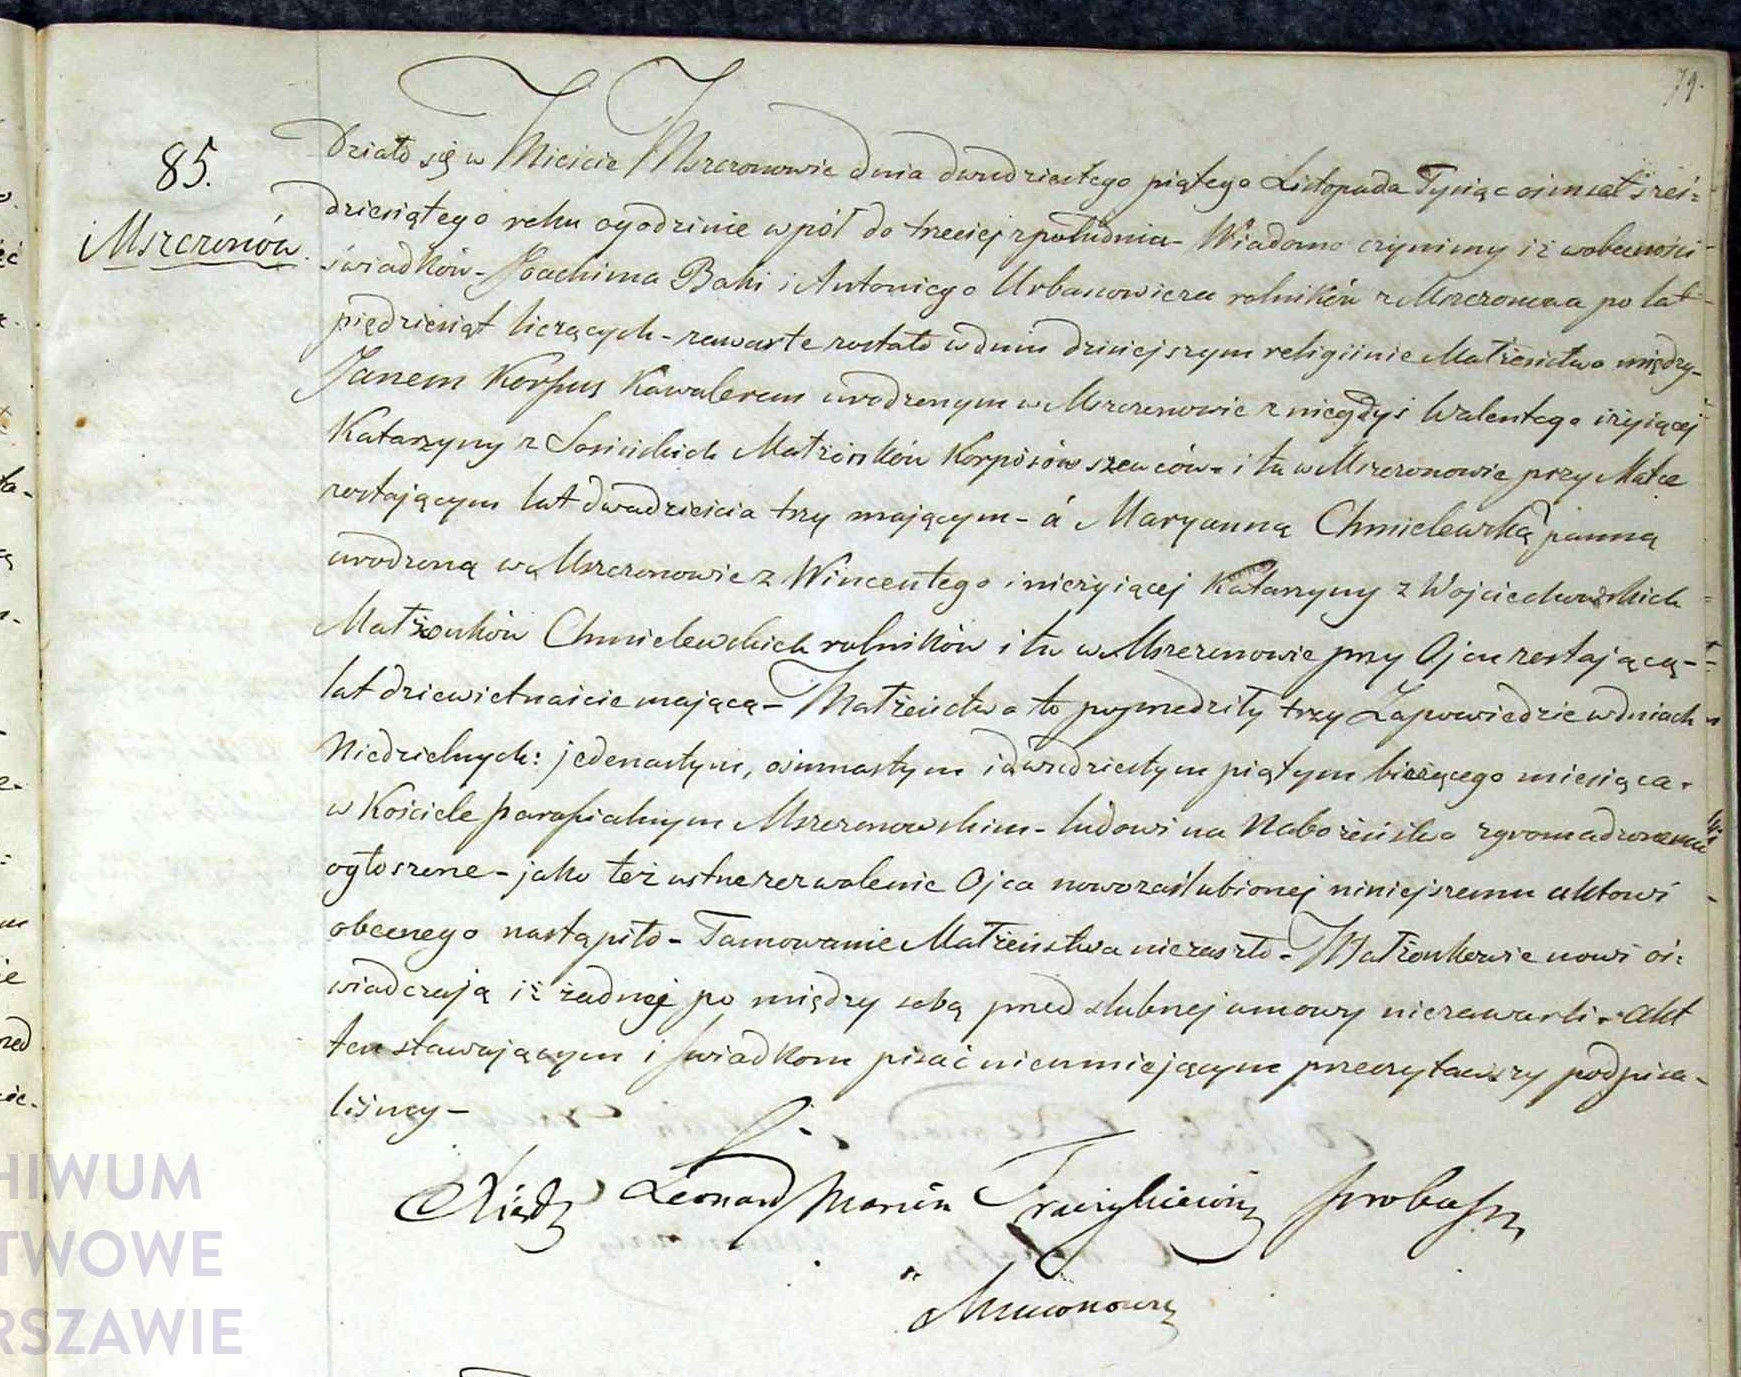 79.
85.
Mszczonów.
Działo się w Mieście Mszczonowie dnia dwudziestego piątego Listopada Tysiąc ośmset sześ=
dziesiątego roku o godzinie wpół do trzeciej z południa - Wiadomo czynimy iż w obecności
świadków - Joachima Baki i Antoniego Urbanowicza rolników z Mszczonowa po lat
pięćdziesiąt liczących - zawarte zostało w dniu dzisiejszym religijnie Małżeństwo między-
Janem Korpus Kawalerem urodzonym w Mszczonowie z niegdyś Walentego i żyiącej
Katarzyny z Małżonków Korpusów szewców - i tu w Mszczonowie przy Matce
zostającym lat dwadzieścia trzy mającym - á Maryanną Chmielewską panną
urodzoną w Mszczonowie z Wincentego i nieżyiącej Katarzyny z Wojciechowskich
Małżonków Chmielewskich rolników i tu w Mszczonowie przy Ojcu zostającą -
lat dziewietnaście mającą - Małżeństwo to poprzedziły trzy Zapowiedzie w dniach
Niedzielnych: jedenastym, ośmnastym i dwudziestym piątym bieżącego miesiąca -
w Kościele parafialnym Mszczonowskim - ludowi na Nabożeństwo zgromadzonemu
ogłoszone - jako też ustne zezwolenie Ojca nowozaślubionej niniejszemu aktowi
obecnego nastąpiło - Tamowanie Małżeństwa niezaszło - Małżonkowie nowi oś=
wiadczają iż żadnej po między sobą przed ślubnej umowy niezawarli - Akt
ten stawającym i świadkom pisać nieumiejącym przeczytawszy podpisa-
liśmy -
Xiądz Leonard Marcin Proboszcz
Mszczonows
HIWUM
TWOWE
RSZAWIE